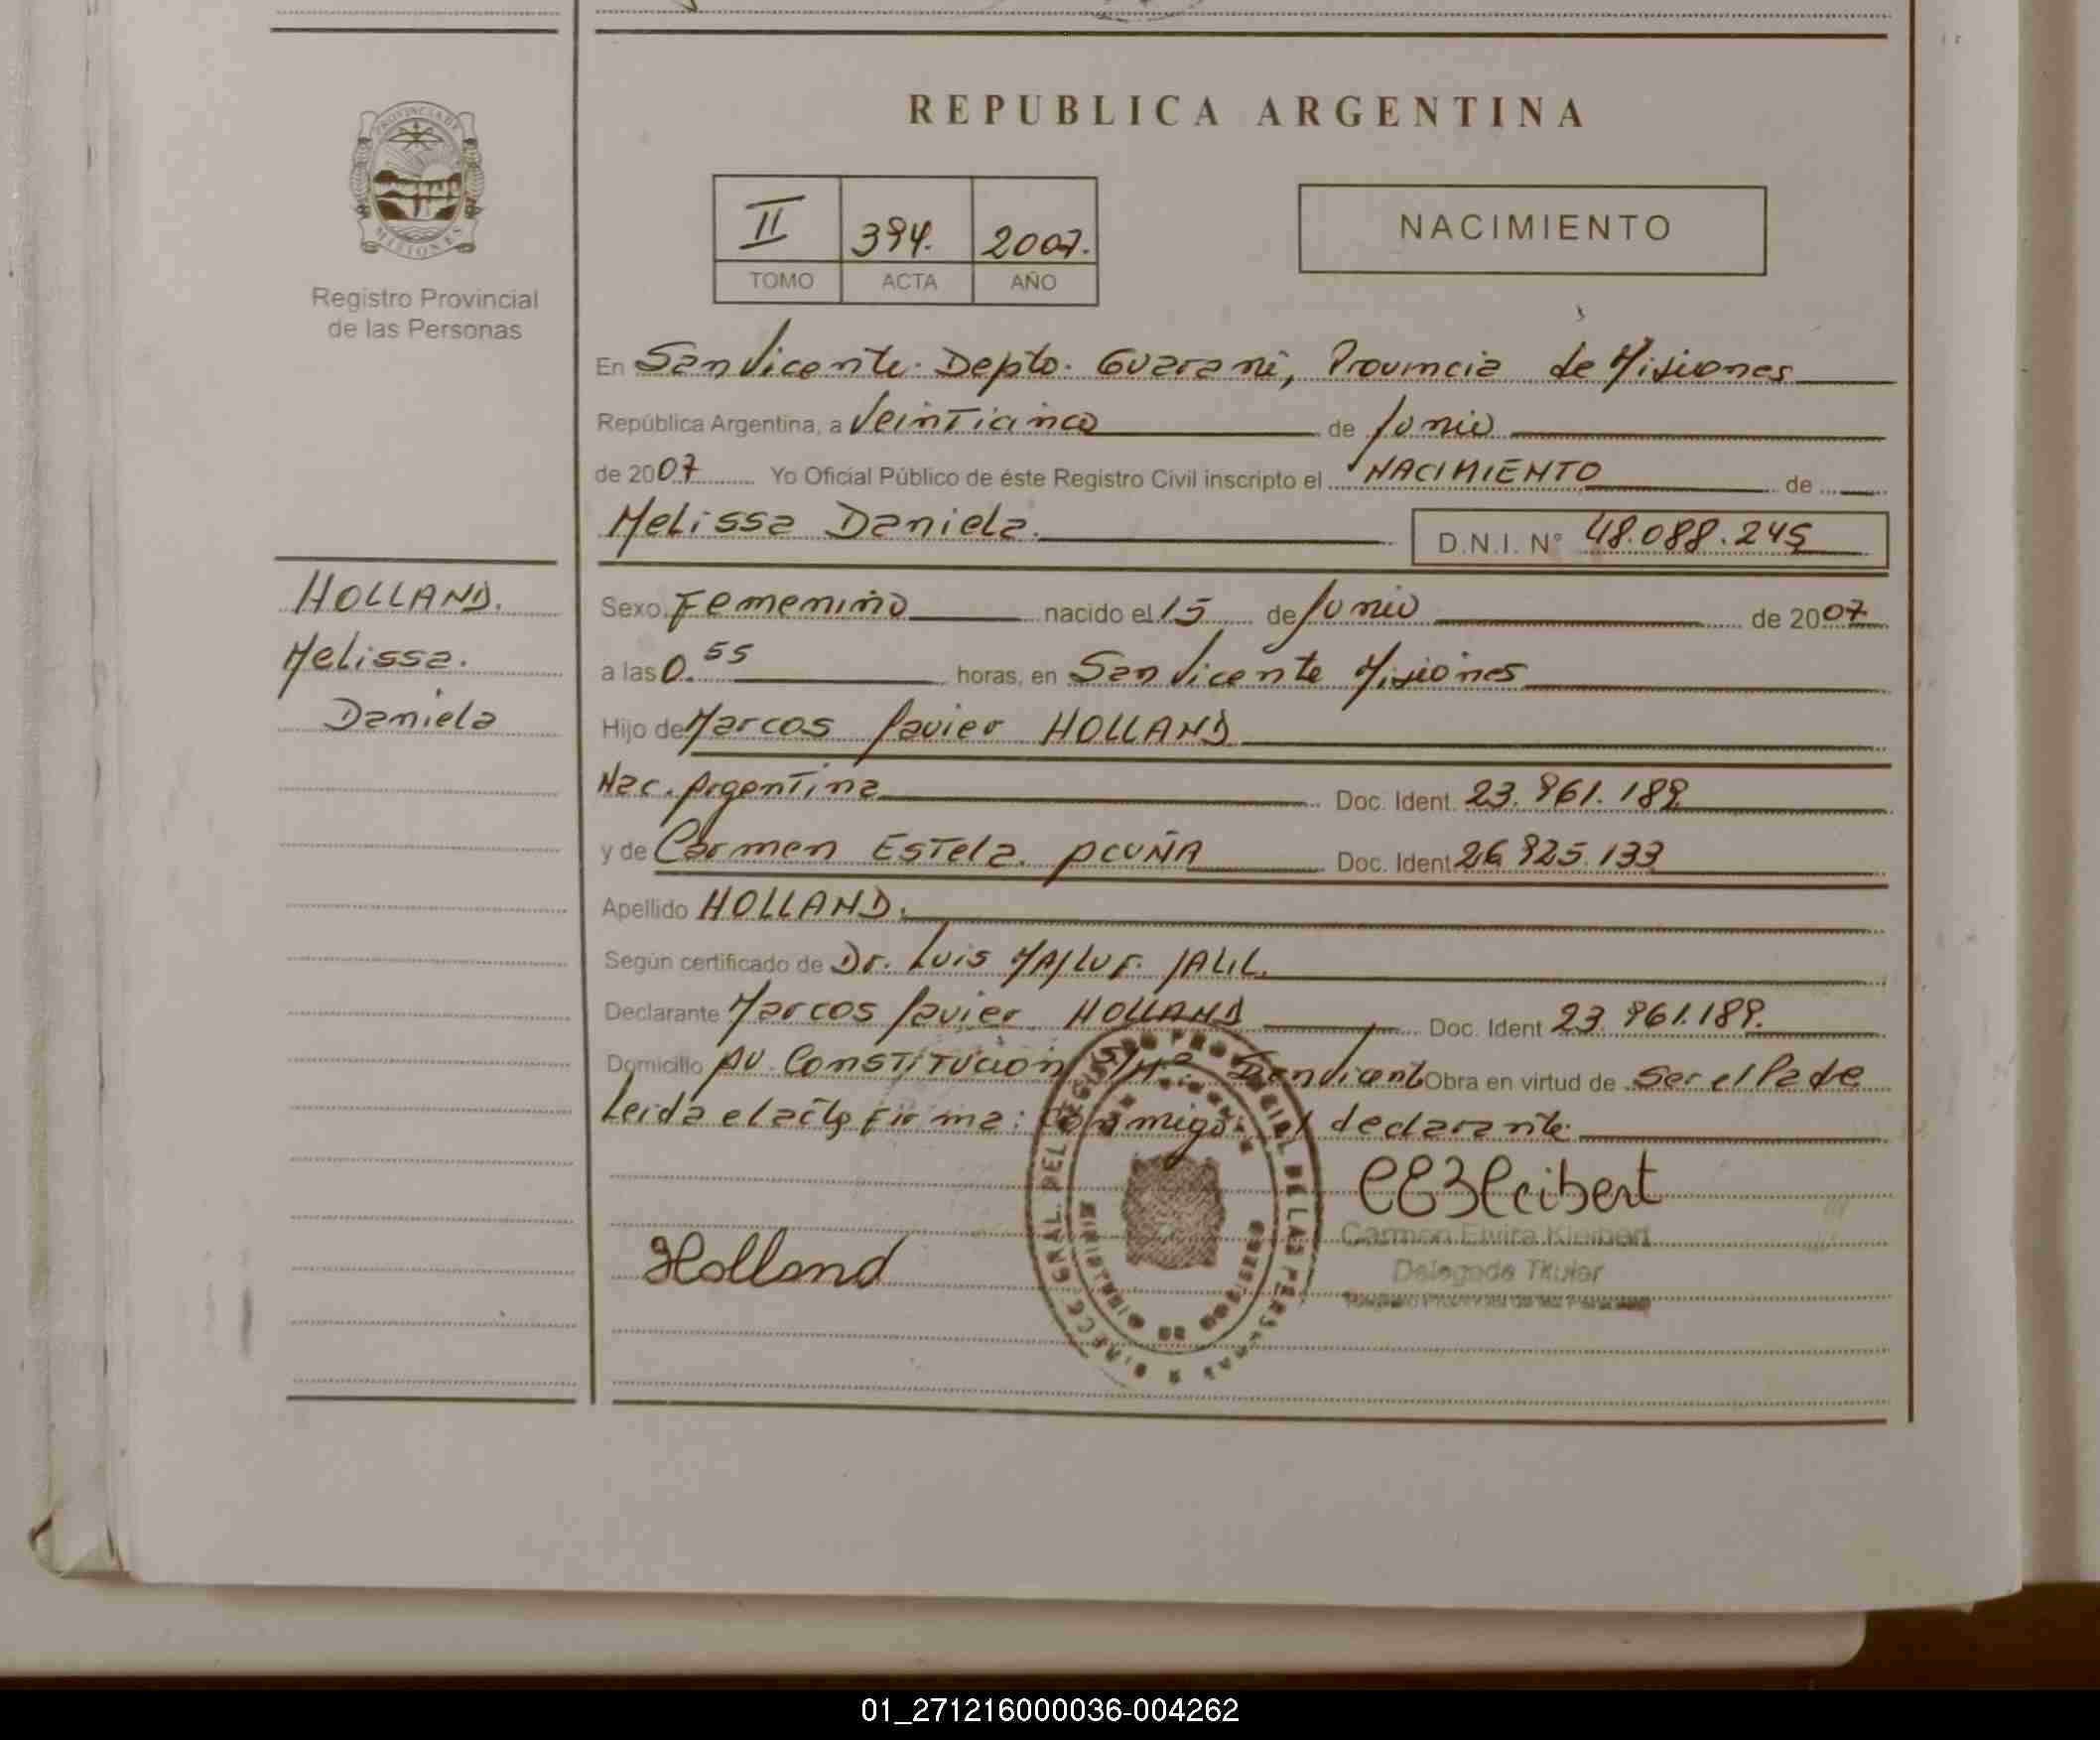 REPUBLICA ARGENTINA
PROVINCIA DE
MISIONES
Registro Provincial
de las Personas
II 394. 2007.
TOMO ACTA AÑO
NACIMIENTO
En San Vicente. Depto. Guarani, Provincia de Misiones
República Argentina, a Veinticinco de Junio
de 2007 Yo Oficial Público de éste Registro Civil inscripto el NACIMIENTO de
Melissa Daniela. D.N.I. N° 48.088.245
HOLLAND.
Melissa.
Daniela
Sexo Femenino nacido el 15 de Junio de 2007
a las 0.55 horas, en San Vicente Misiones
Hijo de Marcos Javier HOLLAND
Nac. Argentina Doc. Ident. 23.961.189
y de Carmen Estela ACUÑA Doc. Ident. 26.925.133
Apellido HOLLAND.
Según certificado de Dr. Luis MAJLUF JALIL.
Declarante Marcos Javier HOLLAND Doc. Ident 23.961.189.
Domicilio AV. Constitucion S/Nº Obra en virtud de ser el Padre
Leida el acta Firma: Conmigo el declarante.
Holland
Carmen Elvira Kleibert
Delegada Titular
Registro Provincial de las Personas
01_271216000036-004262